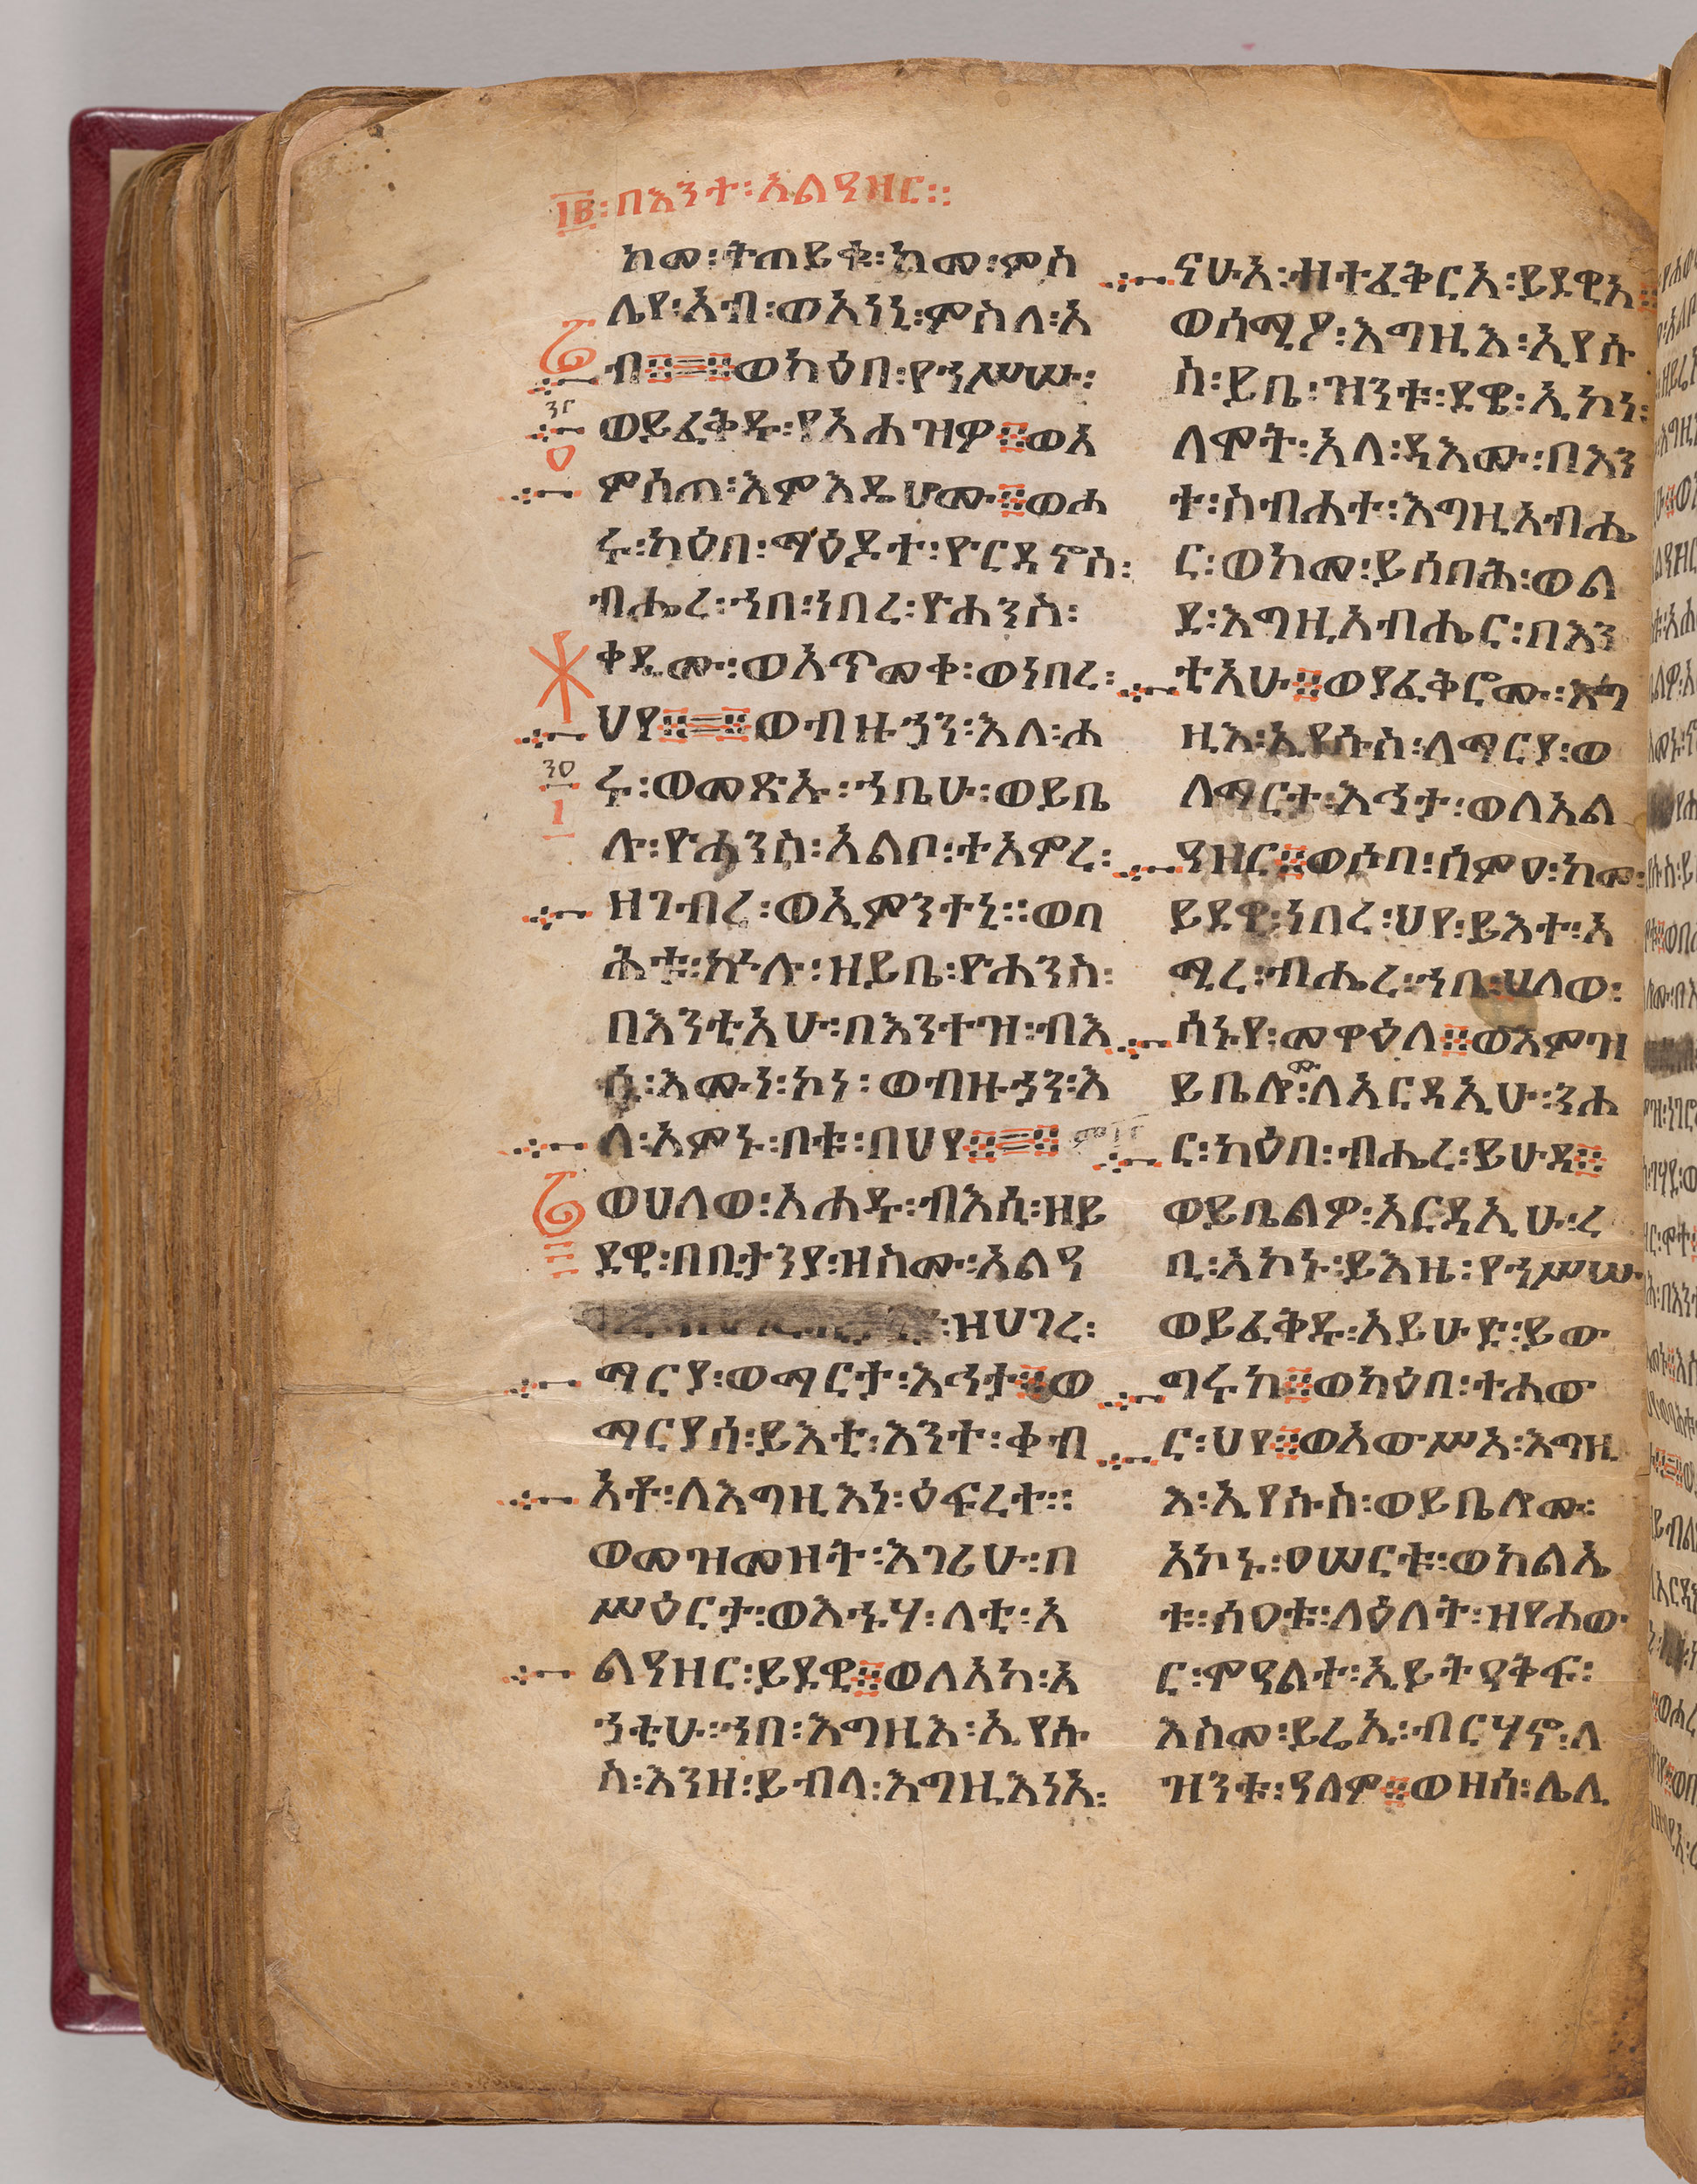 ፲፪፡በእንተ፡አልዓዛር።
ከመ፡ትጠይቁ፡ከመ፡ምስ
ሌየ፡አብ፡ወአነኒ፡ምስለ፡አ
ብ፨፨ወካዕበ፡የኀሥሡ፡
ወይፈቅዱ፡የአኀዝዎ፨ወአ
ምሰጠ፡እምእዴሆሙ፨ወሐ
ሩ፡ካዕበ፡ማዕዶተ፡ዮርዳኖስ፡
ብሔረ፡ኀበ፡ነበረ፡ዮሐንስ፡
ቀዲሙ፡ወአጥመቀ፡ወነበረ፡
ህየ፨፨ወብዙኃን፡እለ፡ሐ
ሩ፡ወመጽኡ፡ኀቤሁ፡ወይቤ
ሉ፡ዮሐንስ፡አልቦ፡ተአምረ፡
ዘገብረ፡ወኢምንተኒ።ወባ
ሕቱ፡ኵሉ፡ዘይቤ፡ዮሐንስ፡
በእንቲአሁ፡በእንተዝ፡ብእ
ሲ፡እሙነ፡ኮነ፡ወብዙኃን፡እ
ለ፡አምኑ፡ቦቱ፡በህየ፨፨
ወሀለወ፡አሐዱ፡ብእሲ፡ዘይ
ደዊ፡በቢታንያ፡ዘስሙ፡አልዓ
፡ዘሀገረ፡
ማርያ፡ወማርታ፡እኅታ፨ወ
ማርያሰ፡ይእቲ፡እንተ፡ቀብ
አቶ፡ለእግዚእነ፡ዕፍረተ።
ወመዝመዘት፡እገሪሁ፡በ
ሥዕርታ፡ወእኁሃ፡ለቲ፡አ
ልዓዘር፡ይደዊ፨ወለአካ፡አ
ኅቲሁ፡ኀበ፡እግዚእ፡ኢየሱ
ስ፡እንዘ፡ይብላ፡እግዚእነአ፡
ናሁአ፡ዘተፈቅርአ፡ይደዊአ፨
ወሰሚዖ፡እግዚእ፡ኢየሱ
ስ፡ይቤ፡ዝንቱ፡ደዌ፡ኢኮነ፡
ለሞት፡አላ፡ዳእሙ፡በእን
ተ፡ስብሐተ፡እግዚአብሔ
ር፡ወከመ፡ይሰባሕ፡ወል
ደ፡እግዚአብሔር፡በእን
ቲአሁ፨ወያፈቅሮሙ፡እግ
ዚእ፡ኢየሱስ፡ለማርያ፡ወ
ለማርታ፡እኅታ፡ወለአል
ዓዘር፨ወሶበ፡ሰምዐ፡ከመ፡
ይደዊ፡ነበረ፡ህየ፡ይእተ፡አ
ሚረ፡ብሔረ፡ኀበ፡ሀለወ፡
ሰኑየ፡መዋዕለ፨ወእምዝ
ይቤሎሙ፡ለአርዳኢሁ፡ንሐ
ር፡ካዕበ፡ብሔረ፡ይሁዳ፨
ወይቤልዎ፡አርዳኢሁ፡ረ
ቢ፡አኮኑ፡ይእዜ፡የኀሥሡ
ወይፈቅዱ፡አይሁድ፡ይው
ግሩከ፨ወካዕበ፡ተሐው
ር፡ህየ፨ወአውሥአ፡እግዚ
እ፡ኢየሱስ፡ወይቤሎሙ፡
አኮኑ፡ዐሠርቱ፡ወክልኤ
ቱ፡ሰዐቱ፡ለዕለት፡ዘየሐው
ር፡ሞዓልተ፡ኢይትዓቅፍ፡
እስመ፡ይሬኢ፡ብርሃኖ፡ለ
ዝንቱ፡ዓለም፨ወዘሰ፡ሌሊ